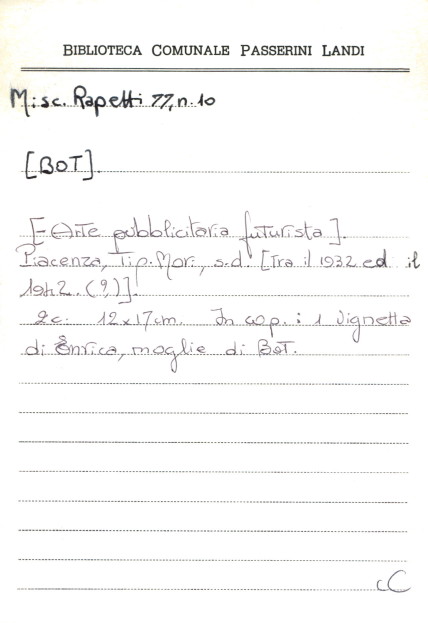 BIBLIOTECA COMUNALE PASSERINI LANDI
Misc. Rapetti 77, n. 10
[BOT].
[- Arte pubblicitaria futurista].
Piacenza, Tip. Mori, s.d. [Tra il 1932 ed il
1942. (?)].
2c. 12x17cm. In cop.: 1 vignetta
di Enrica, moglie di BOT.
cC